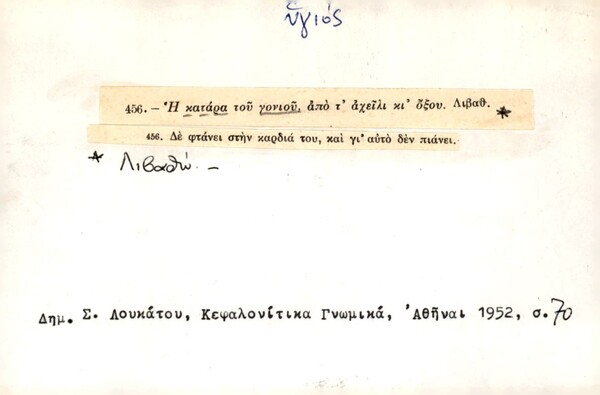 ὑγιός
456. — Ἡ κατάρα τοῦ γονιοῦ, ἀπὸ τ' ἀχεῖλι κι' ὄξου. Λιβαθ. *
456. Δὲ φτάνει στὴν καρδιά του, καὶ γι' αὐτὸ δὲν πιάνει.
* Λιβαθώ. —
Δημ. Σ. Λουκάτου, Κεφαλονίτικα Γνωμικά, Ἀθῆναι 1952, σ. 70